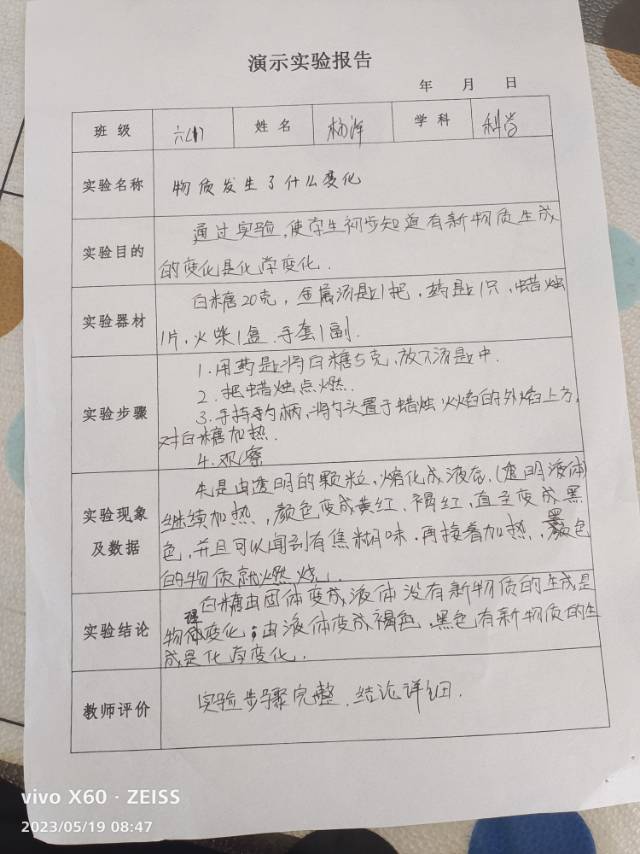 演示实验报告
年 月 日
班级 六(1) 姓名 杨洋 学科 科学
实验名称 物质发生了什么变化
实验目的 通过实验,使学生初步知道有新物质生成
的变化是化学变化.
实验器材 白糖20克,金属汤匙1把,药匙1只,蜡烛
1片,火柴1盒.手套1副.
实验步骤
1.用药匙将白糖5克,放入汤匙中.
2.把蜡烛点燃.
3.手持勺柄,将勺头置于蜡烛火焰的外焰上方,
对白糖加热.
4.观察
实验现象
及数据
先是由透明的颗粒,熔化成液态,(透明液体)
继续加热,颜色变成黄红、褐红,直至变成黑
色,并且可以闻到有焦糊味,再接着加热,黑色
的物质就燃烧.
实验结论
白糖由固体变成液体没有新物质的生成是
物理变化;由液体变成褐色、黑色有新物质的生
成是化学变化.
教师评价 实验步骤完整.结论详细.
vivo X60 · ZEISS
2023/05/19 08:47